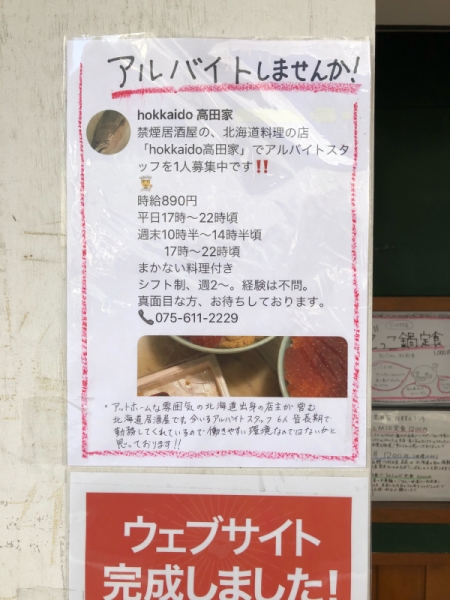 アルバイトしませんか!
hokkaido 高田家
禁煙居酒屋の、北海道料理の店
「hokkaido高田家」でアルバイトスタ
ッフを1人募集中です‼️
時給890円
平日17時〜22時頃
週末10時半〜14時半頃
17時〜22時頃
まかない料理付き
シフト制、週2〜。経験は不問。
真面目な方、お待ちしております。
📞075-611-2229
・アットホームな雰囲気の北海道出身の店主が営む
北海道居酒屋です。今いるアルバイトスタッフ 6人 皆長期で
勤務してくれているので働きやすい環境なのではないかと
思っております!!
ウェブサイト
完成しました!
鍋定食